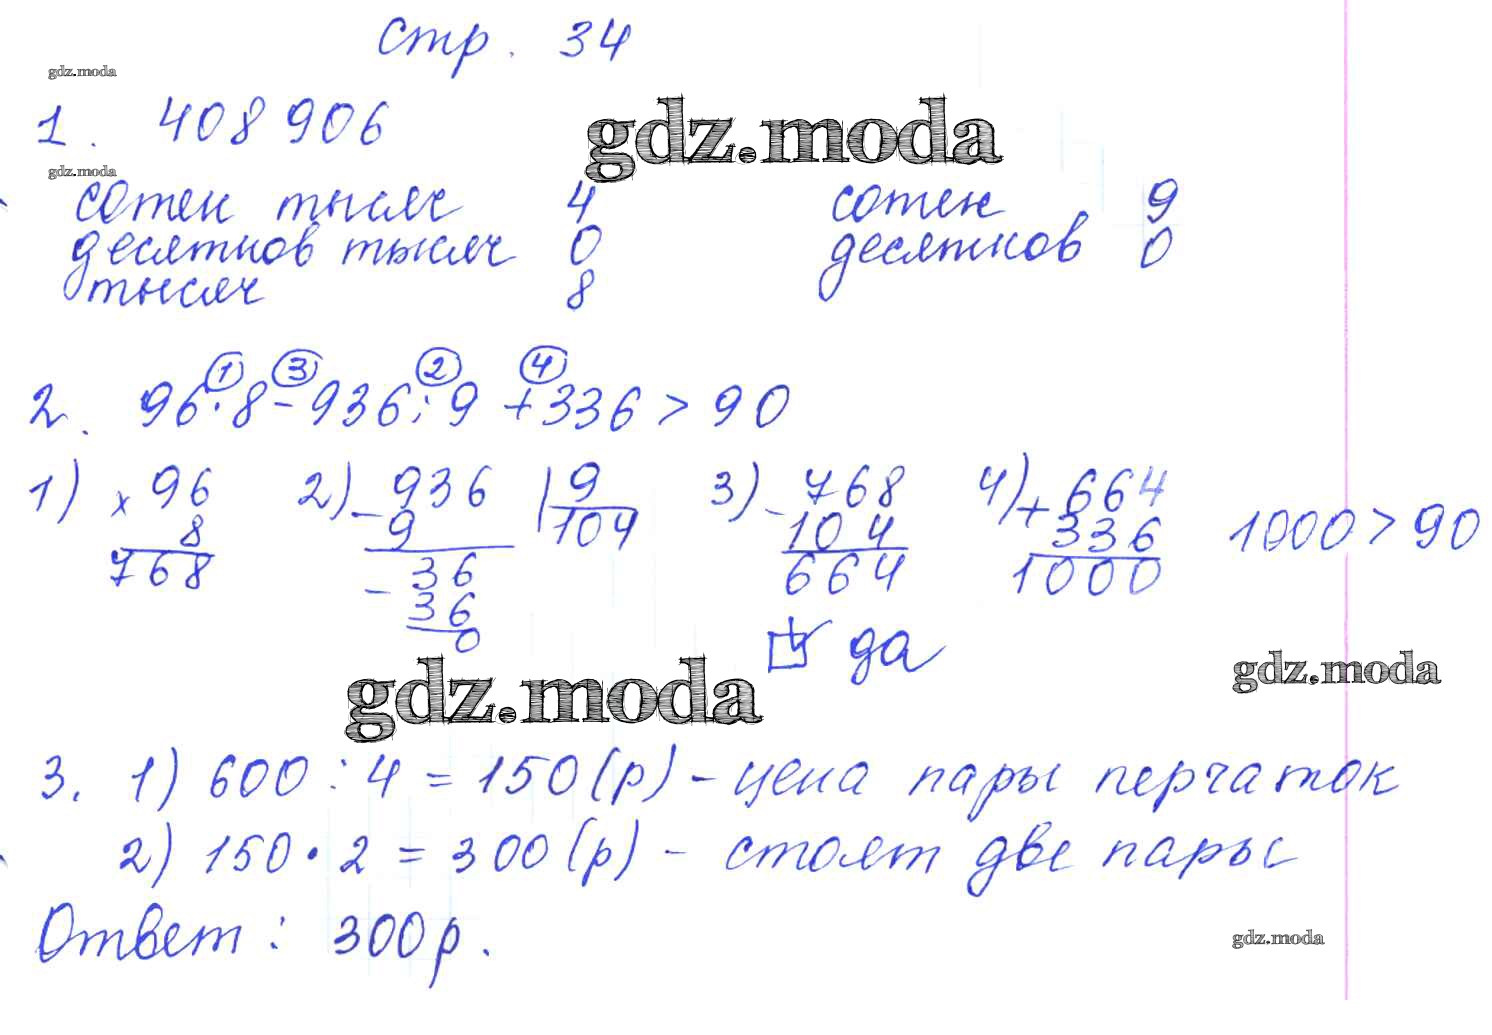 стр. 34
gdz.moda
1. 408 906
gdz.moda
gdz.moda
сотен тысяч 4 сотен 9
десятков тысяч 0 десятков 0
тысяч 8
① ③ ② ④
2. 96·8-936:9+336>90
1) × 96 2) - 936 | 9 3) - 768 4) + 664
8 9 104 104 336 1000>90
768 - 36 664 1000
36
0
да
gdz.moda
gdz.moda
3. 1) 600:4=150(р)-цена пары перчаток
2) 150·2=300(р)-стоят две пары
Ответ: 300р.
gdz.moda